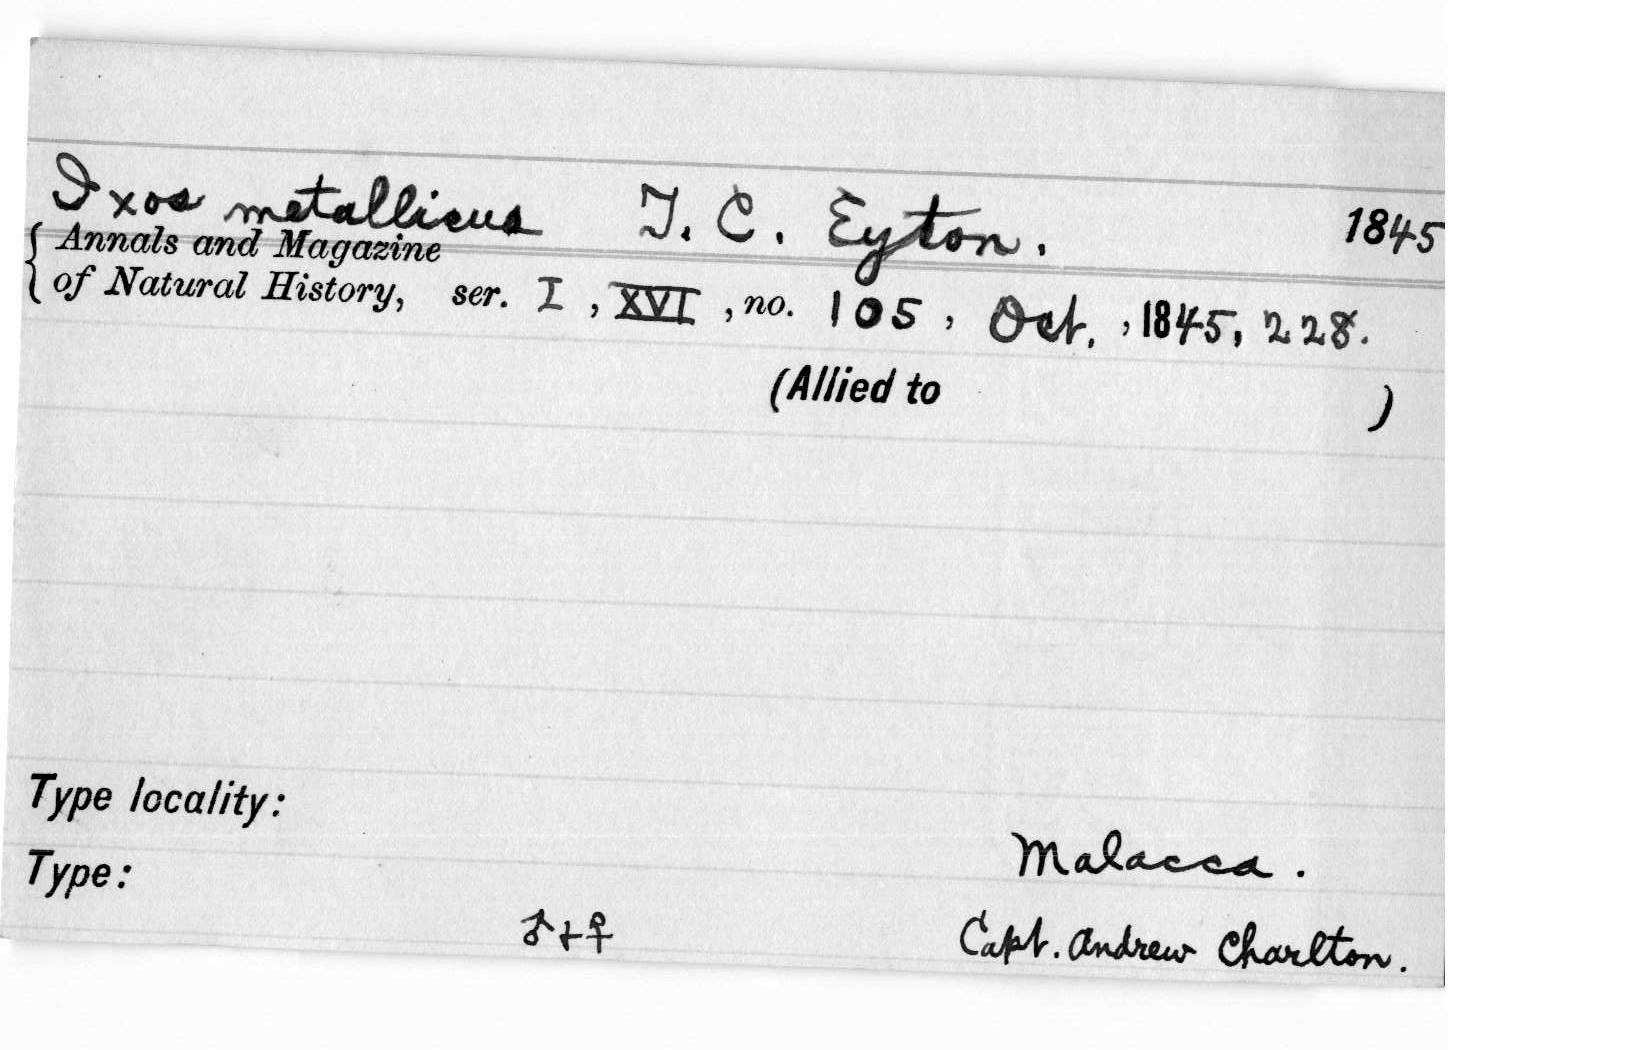 Ixos metallicus T. C. Eyton. 1845
{ Annals and Magazine
of Natural History, ser. I, XVI, no. 105, Oct., 1845, 228.
(Allied to )
Type locality:
Malacca.
Type:
♂+♀ Capt. Andrew Charlton.